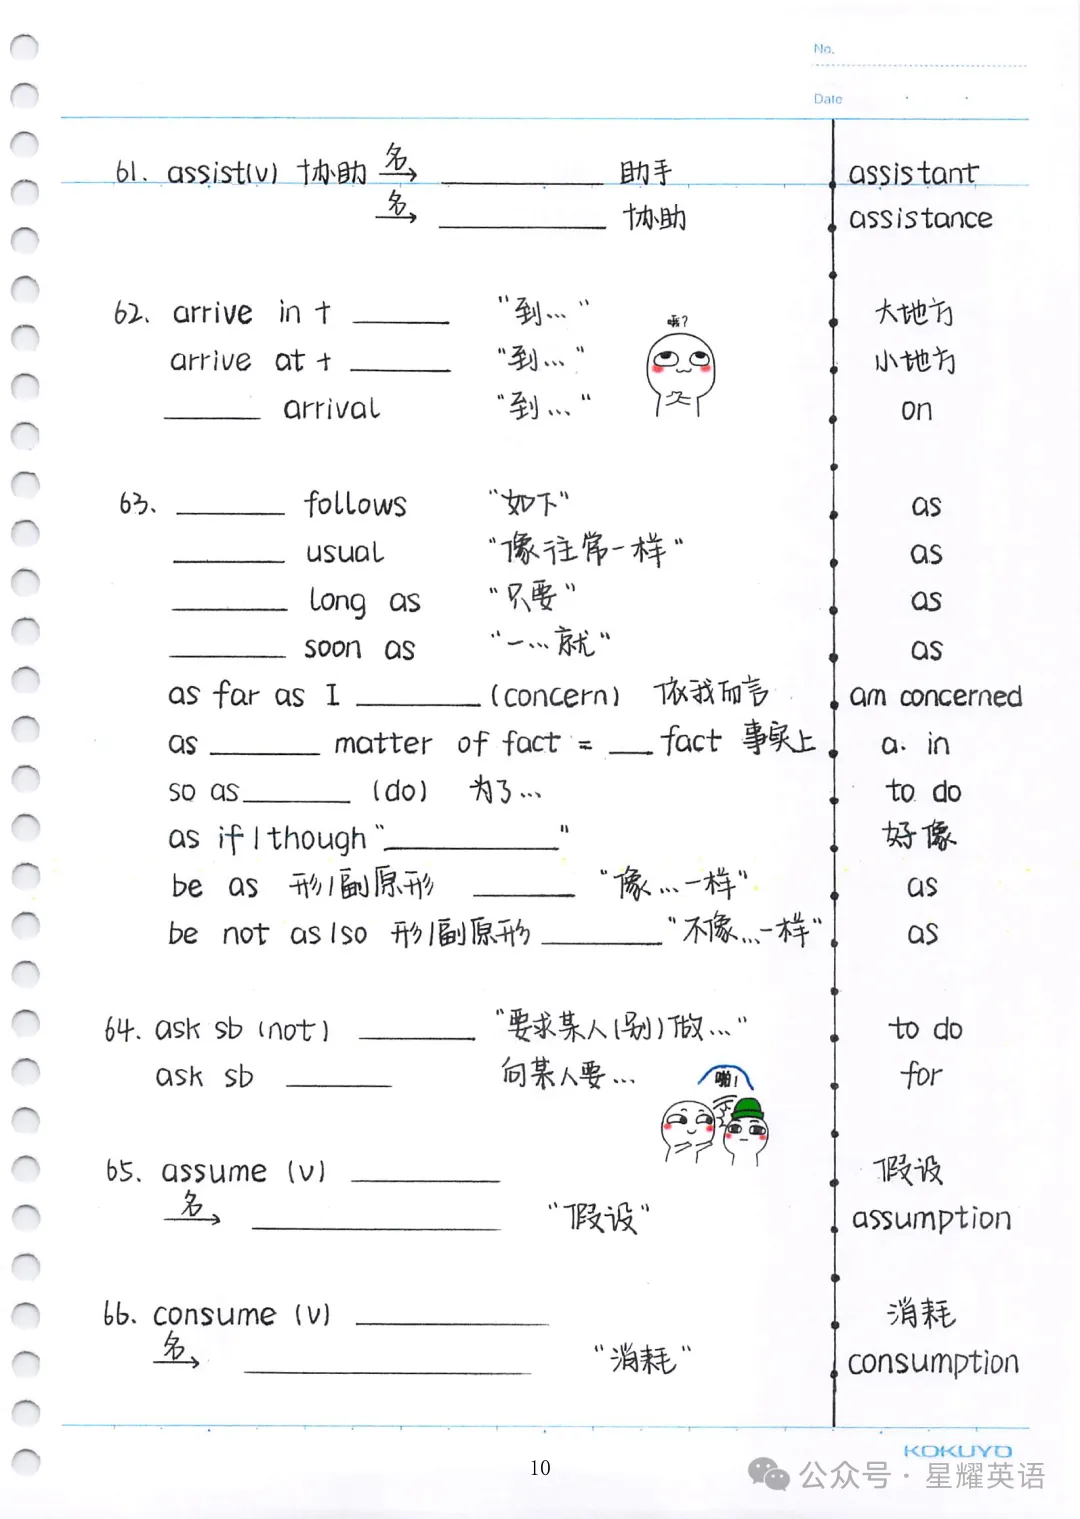 No.
Date
61. assist(v) 协助 名→ ________ 助手 assistant
名→ ________ 协助 assistance
62. arrive in + ________ "到…" 大地方
哦?
arrive at + ________ "到…" 小地方
________ arrival "到…" on
63. ________ follows "如下" as
________ usual "像往常一样" as
________ long as "只要" as
________ soon as "一…就" as
as far as I ________ (concern) 依我而言 am concerned
as ________ matter of fact = ___ fact 事实上 a. in
so as ________ (do) 为了… to do
as if/though "________" 好像
be as 形/副原形 ________ "像…一样" as
be not as/so 形/副原形 ________ "不像…一样" as
64. ask sb (not) ________ "要求某人(别)做…" to do
ask sb ________ 向某人要… for
啪!
65. assume (v) ________ 假设
名→ ________ "假设" assumption
66. consume (v) ________ 消耗
名→ ________ "消耗" consumption
KOKUYO
10
公众号·星耀英语